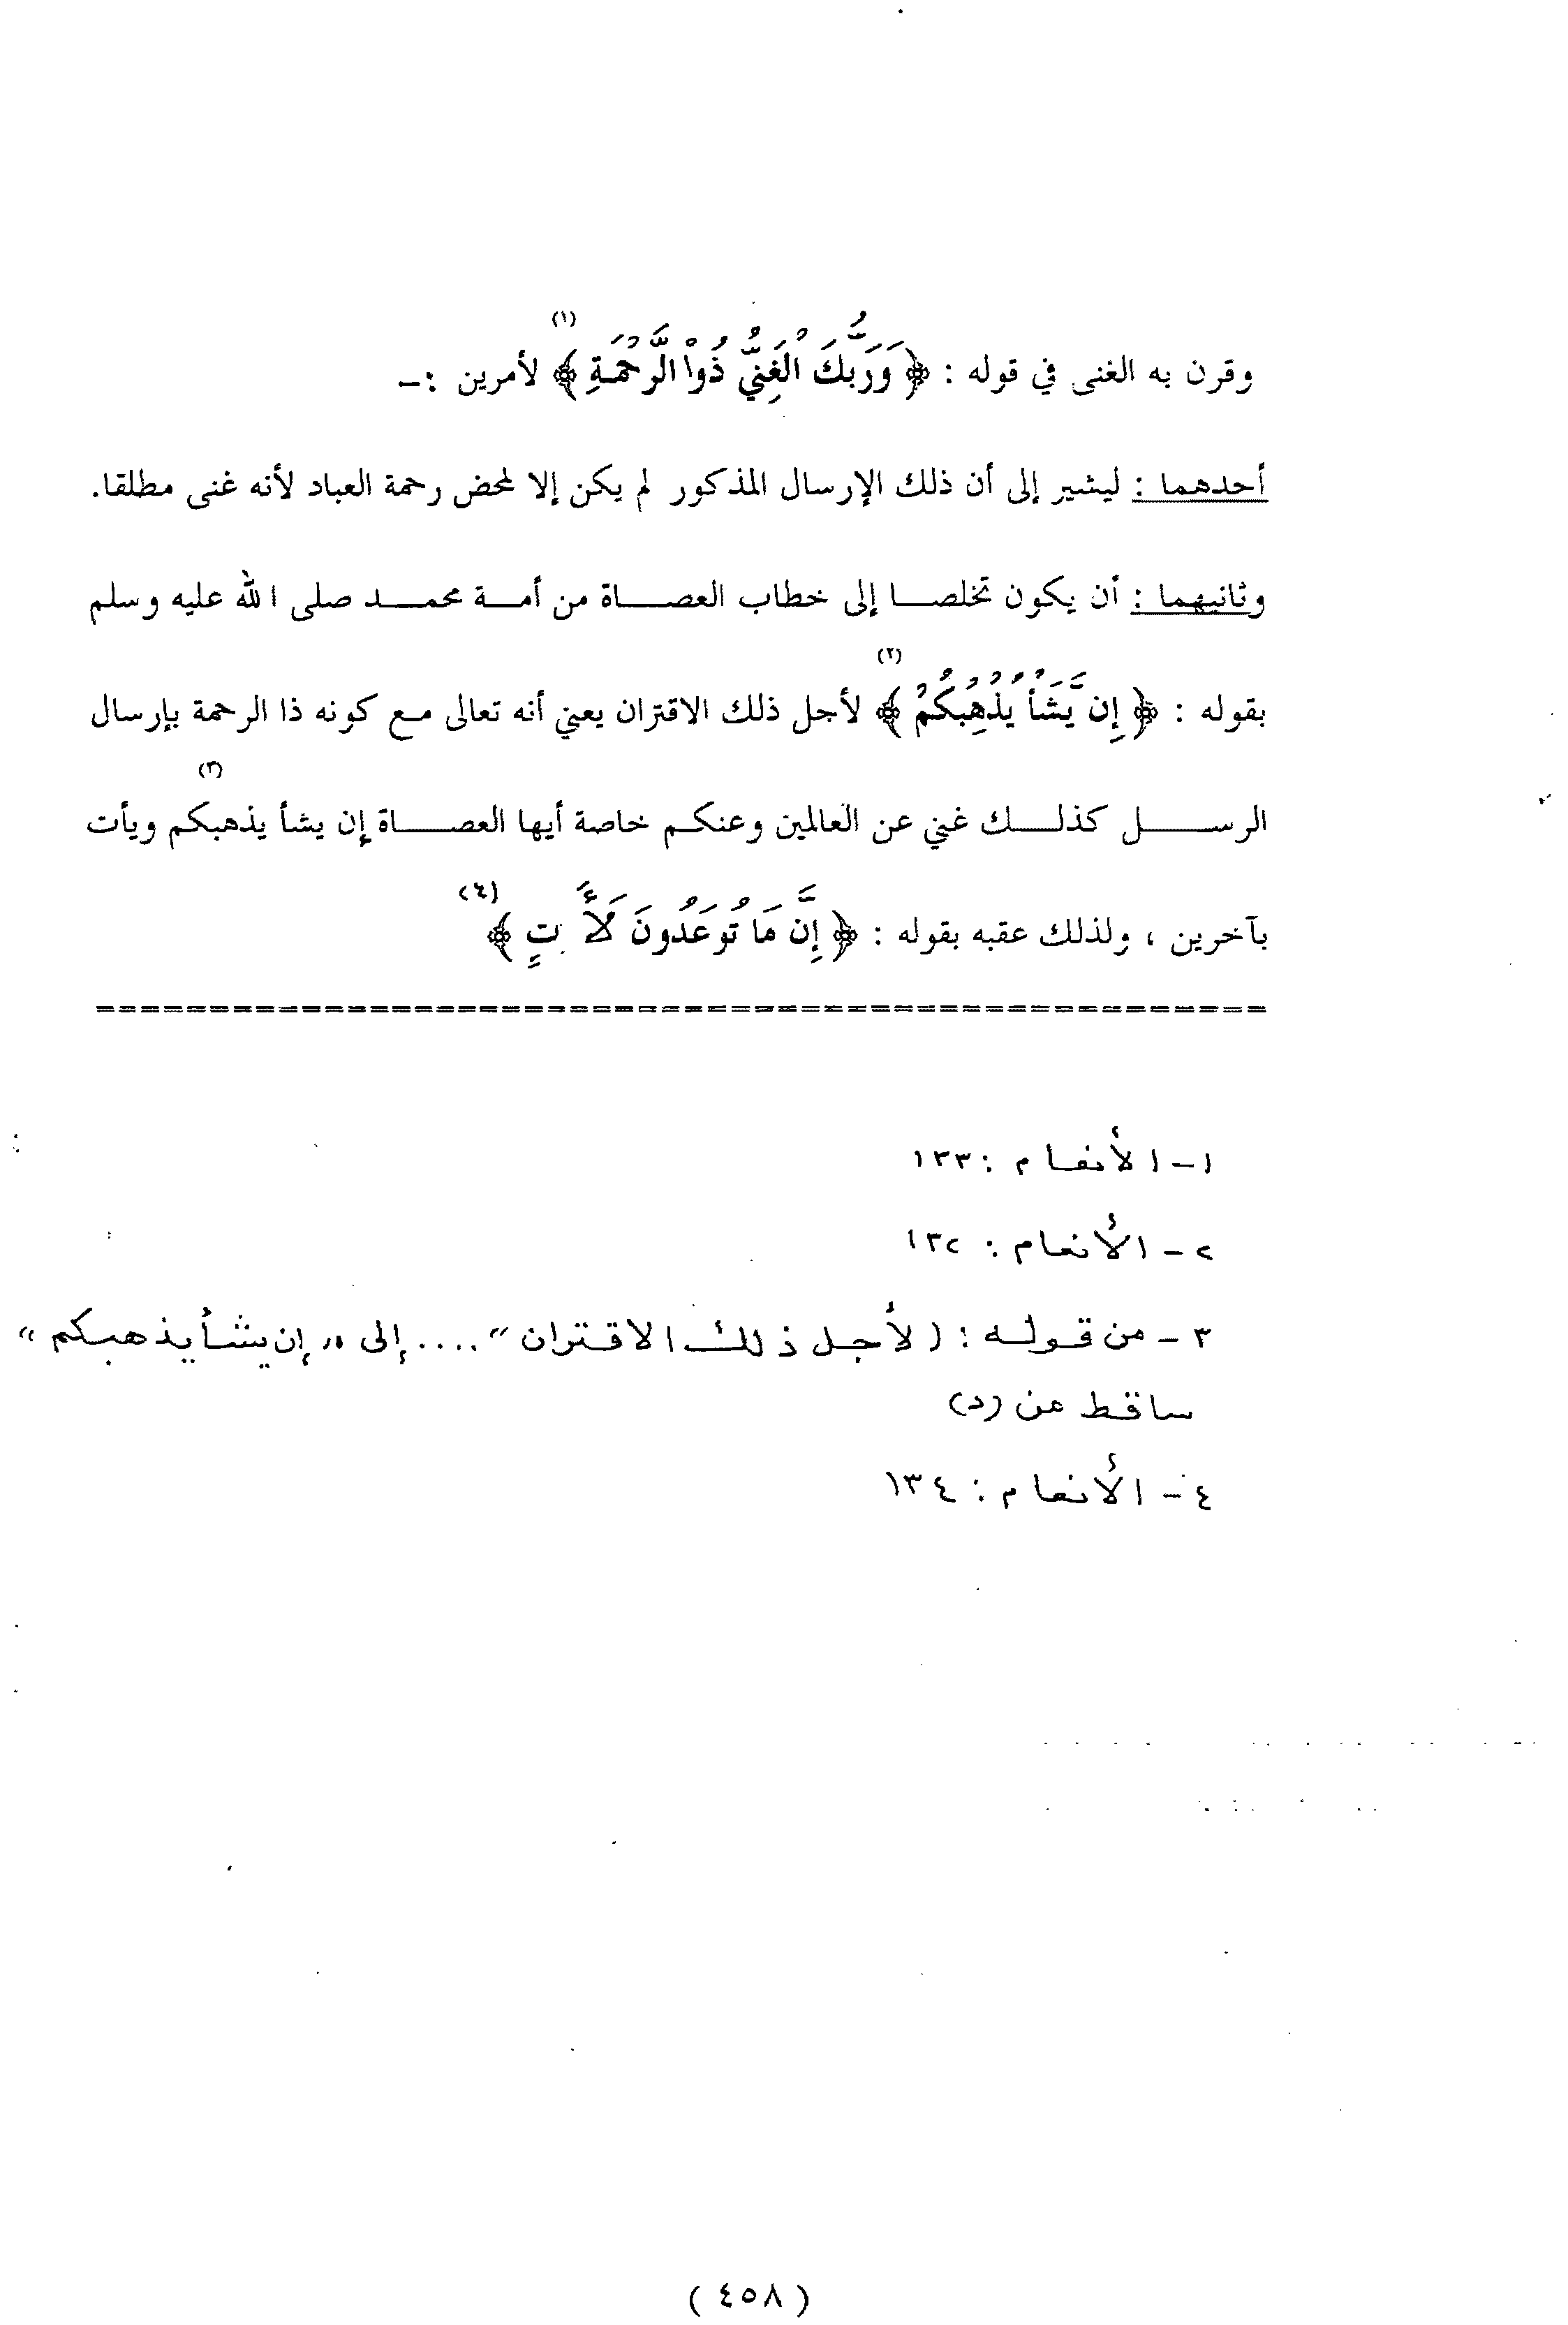 وقرن به الغنى في قوله : ﴿ وَرَبُّكَ الْغَنِيُّ ذُو الرَّحْمَةِ ﴾ (١) لأمرين :ـ
أحدهما : ليشير إلى أن ذلك الإرسال المذكور لم يكن إلا لمحض رحمة العباد لأنه غنى مطلقا.
وثانيهما : أن يكون تخلصا إلى خطاب العصاة من أمة محمد صلى الله عليه وسلم
بقوله : ﴿ إِن يَشَأْ يُذْهِبْكُمْ ﴾ (٢) لأجل ذلك الاقتران يعني أنه تعالى مع كونه ذا الرحمة بإرسال
الرسل كذلك غني عن العالمين وعنكم خاصة أيها العصاة إن يشأ يذهبكم (٣) ويأت
بآخرين ، ولذلك عقبه بقوله : ﴿ إِنَّ مَا تُوعَدُونَ لَأَتٍ ﴾ (٤)
==================================================
١ - الأنعام : ١٣٣
٢ - الأنعام : ١٣٢
٣ - من قوله : ( لأجل ذلك الاقتران " .... إلى " إن يشأ يذهبكم "
ساقط عن (د)
٤ - الأنعام : ١٣٤
( ٤٥٨ )